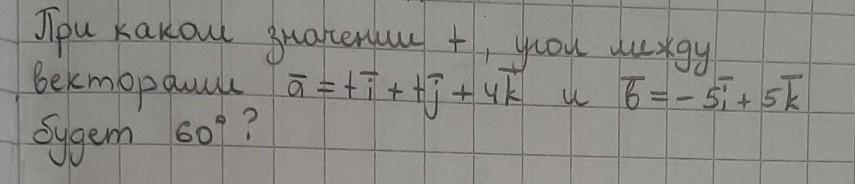 При каком значении t, угол между
векторами a̅ = ti̅ + tj̅ + 4k̅ и b̅ = -5i̅ + 5k̅
будет 60°?